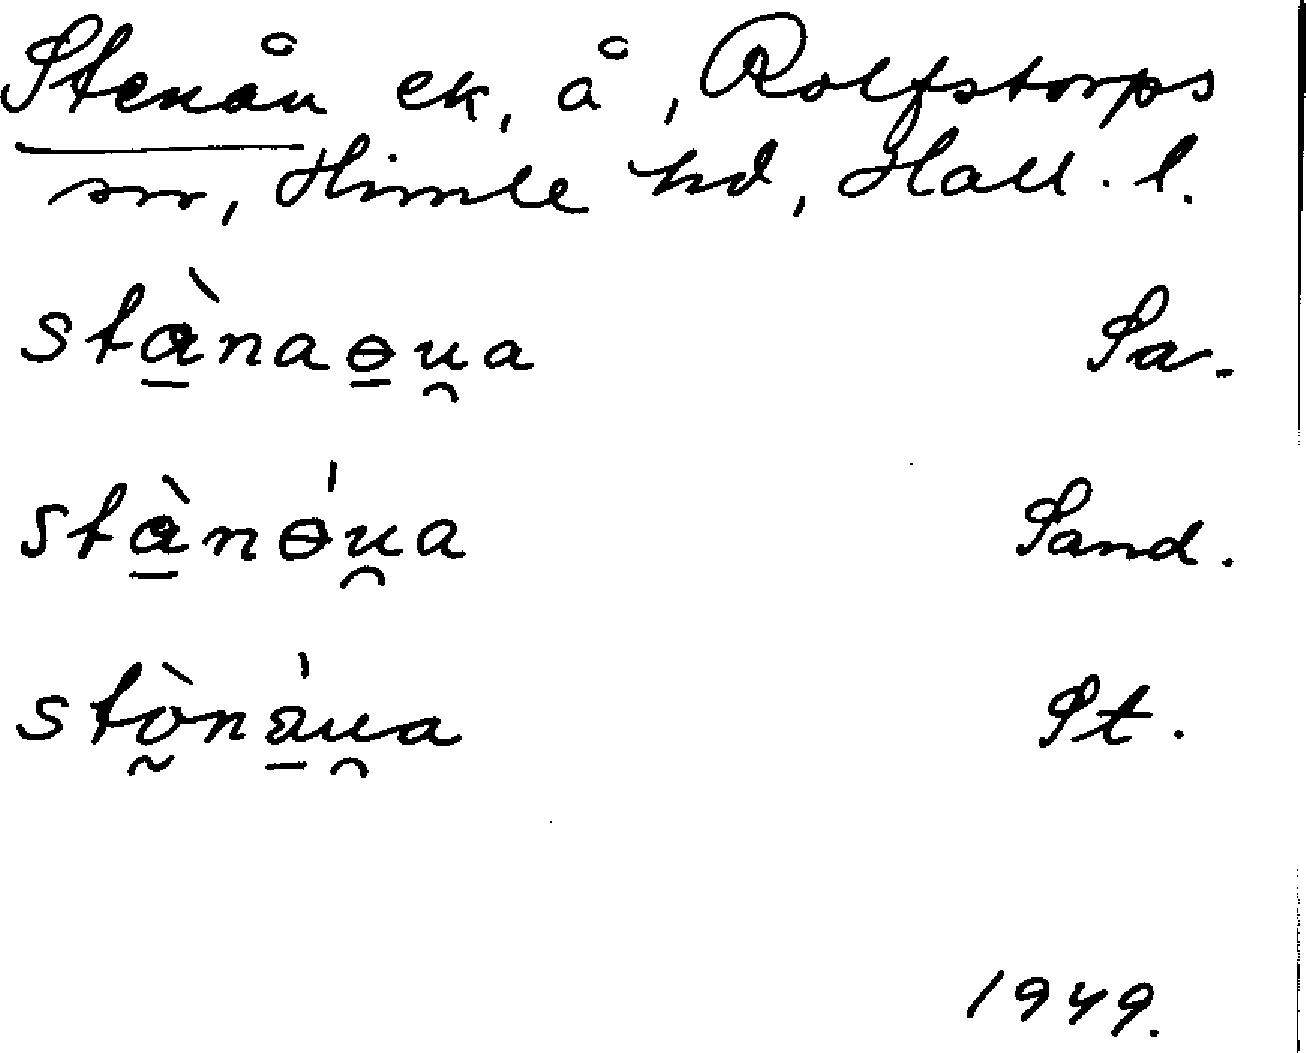 Stenån ek, å, Rolfstorps
sn, Himle hd, Hall. l.
stὰ̱naɵ̱u̯a Sa.
stὰ̱nɵ́u̯a Sand.
stò̰ná̱u̯a St.
1949.